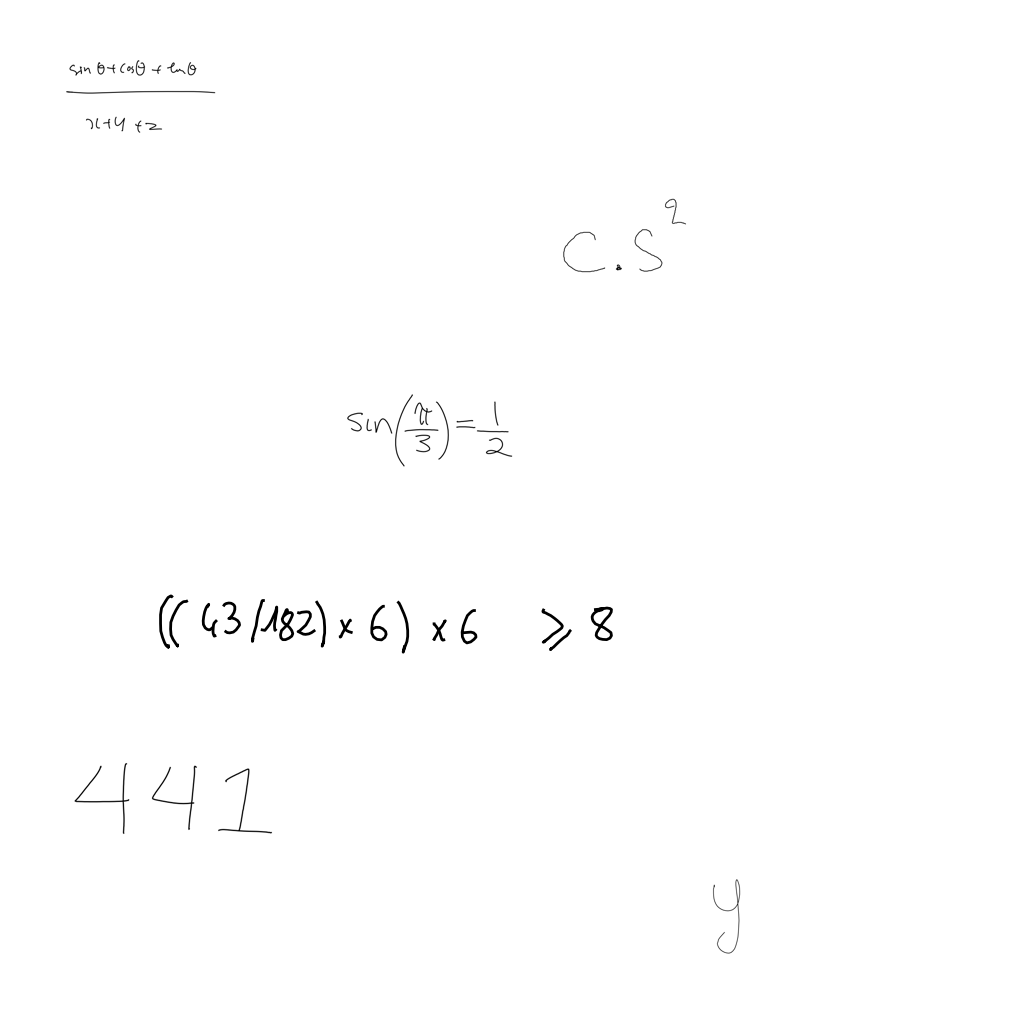 sin θ + cos θ + ln θ
x + y + z
C.S²
sin(π/3) = 1/2
((43/182) × 6) × 6 ⩾ 8
441
y